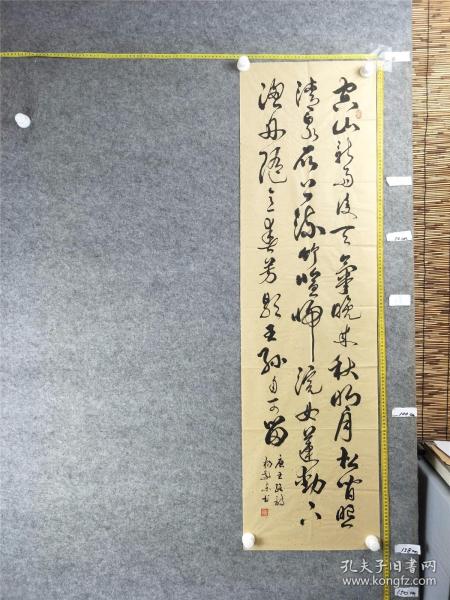 空山新雨後天氣晚來秋明月松間照
清泉石上流竹喧歸浣女蓮動下
漁舟隨意春芳歇王孫自可留
唐王維詩
書
孔夫子旧书网
www.kongfz.com